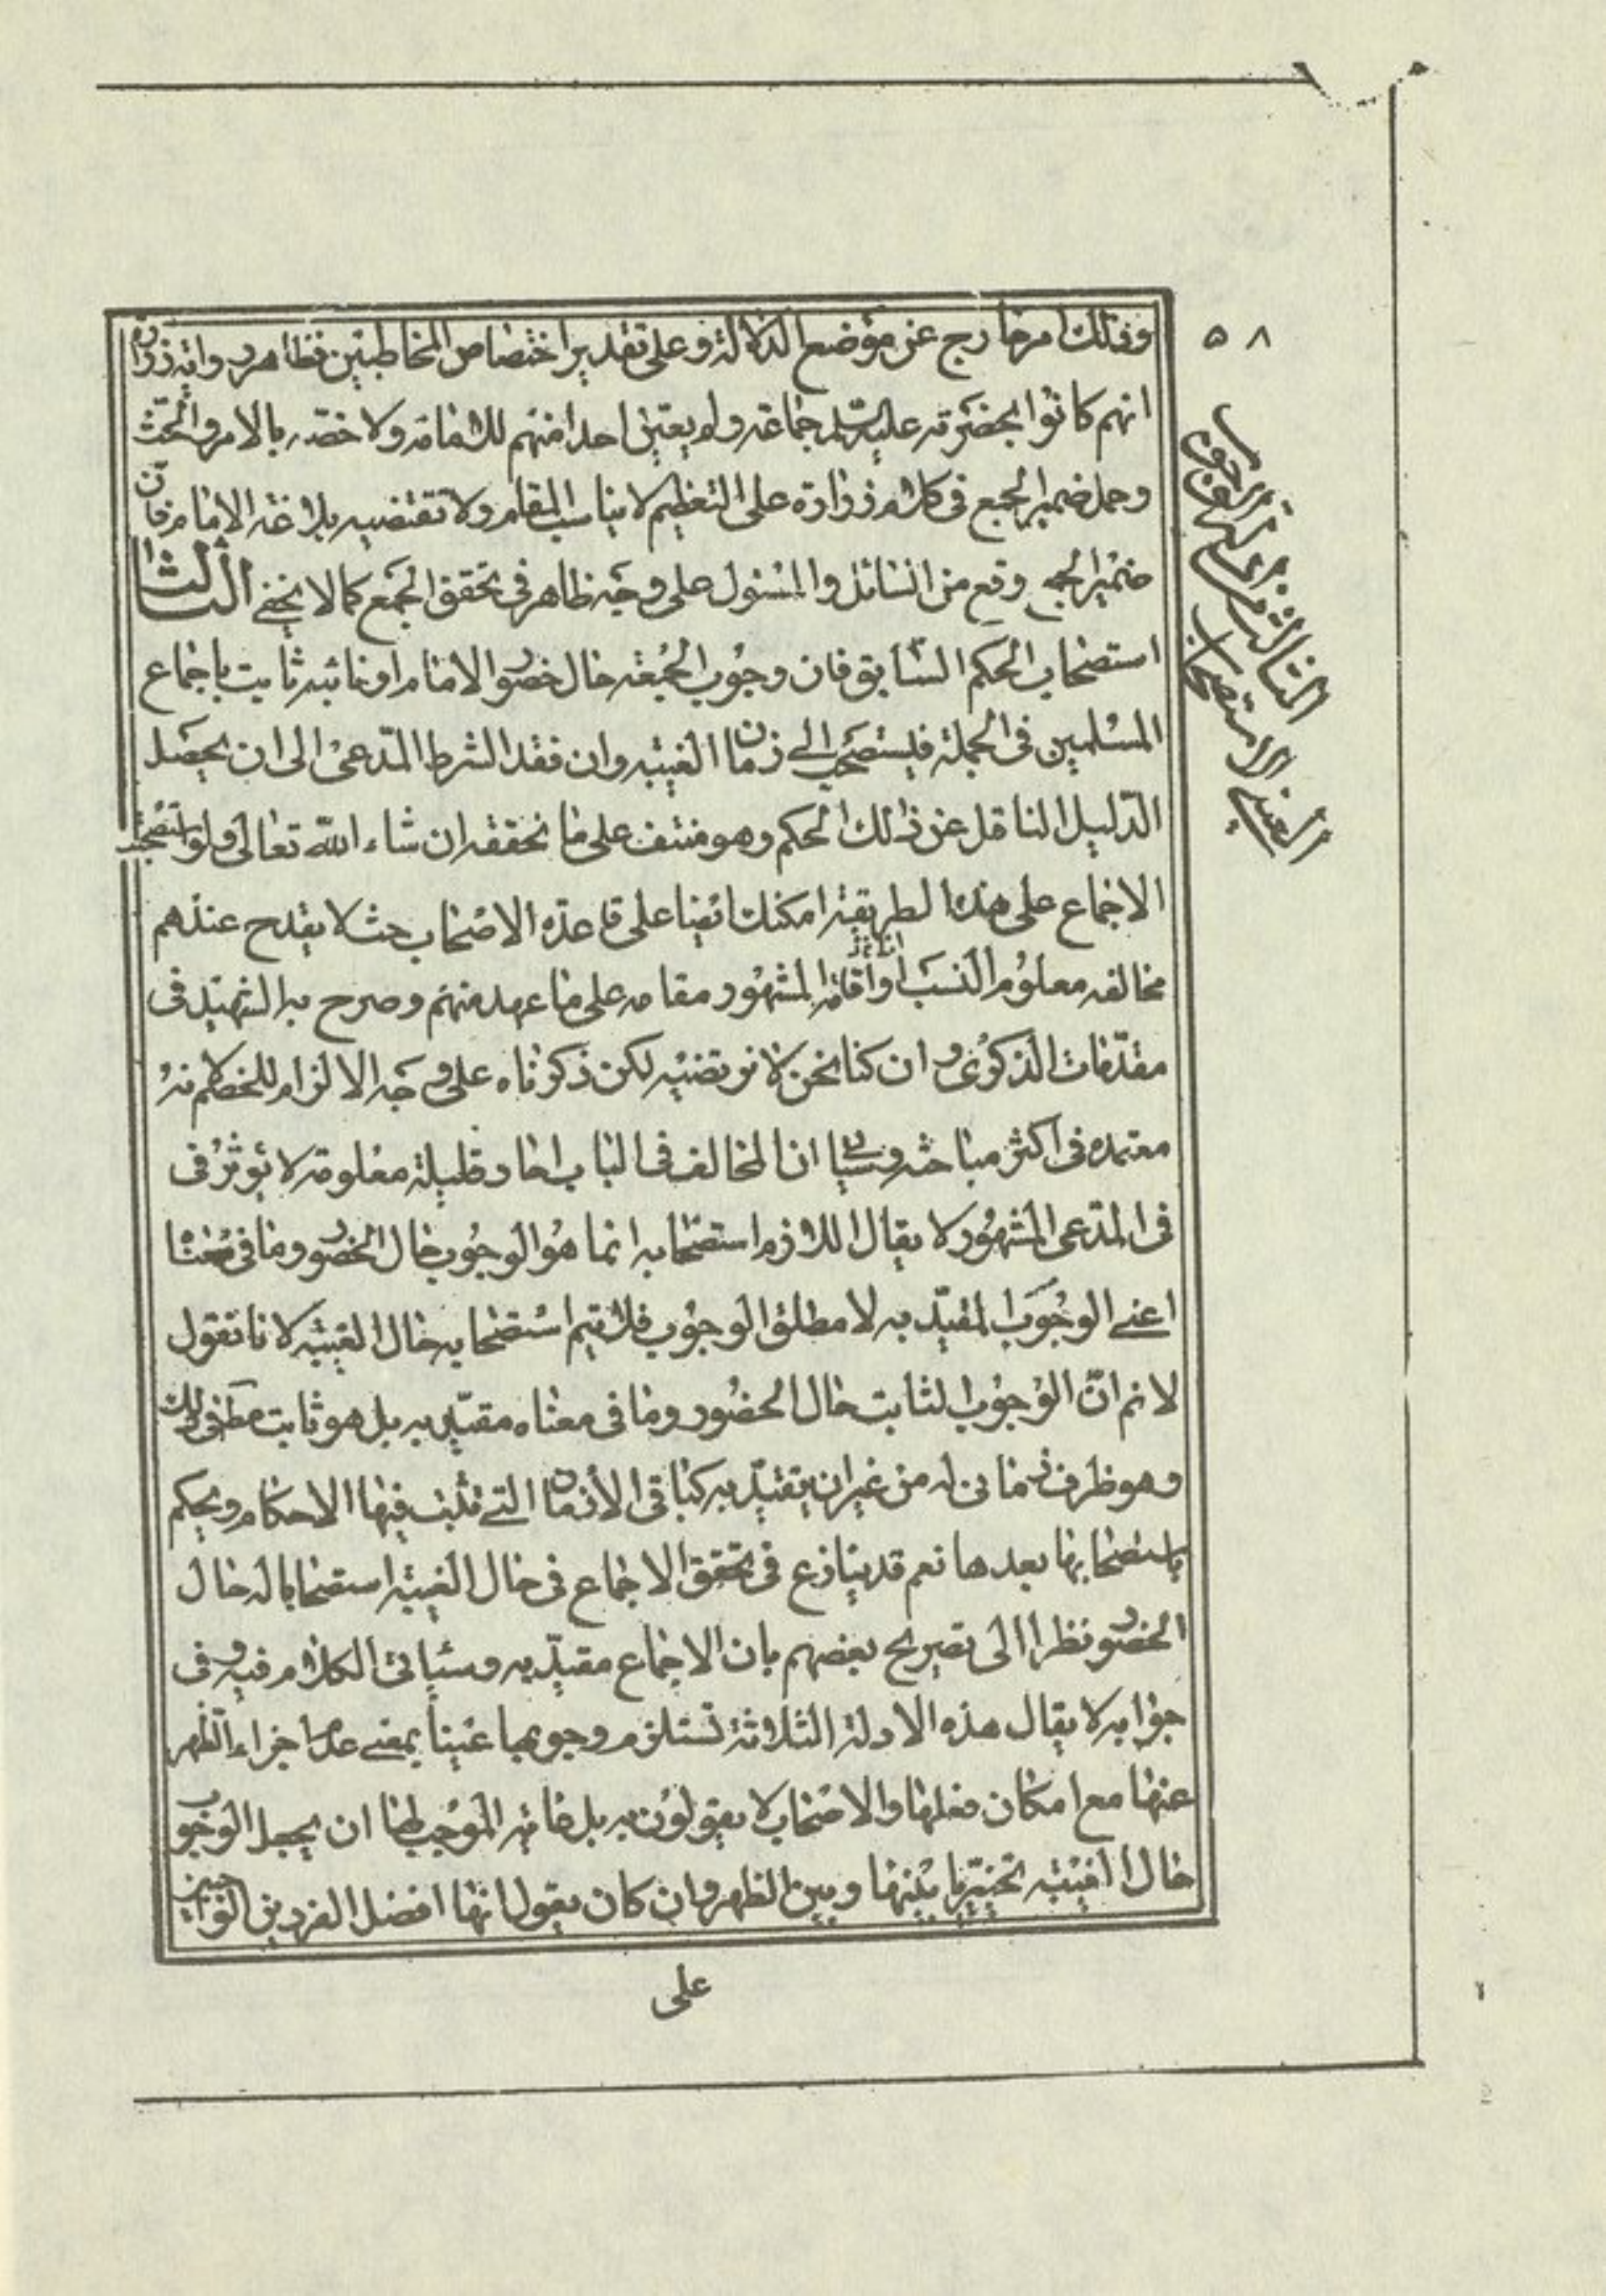 ٥٨
وذلك امر خارج عن موضع الدلالة وعلى تقدير اختصاص المخاطبين فظاهر رواية زرارة
انهم كانوا بحضرته عليه السلم جماعة ولم يعين احدا منهم للامامة ولا خصه بالامر والحث
وحمل ضمير الجمع فى كلام زرارة على التعظيم لا يناسب المقام ولا تقتضيه بلاغة الامام فان
ضمير الجمع وقع من السائل والمسئول على وجه ظاهر فى تحقق الجمع كما لا يخفى الثالث
استصحاب الحكم السابق فان وجوب الجمعة حال حضور الامام او نائبه ثابت باجماع
المسلمين فى الجملة فيستصحب الى زمان الغيبة وان فقد الشرط المدعى الى ان يحصل
الدليل الناقل عن ذلك الحكم وهو منتف على ما نحققه ان شاء الله تعالى ولو استصحب
الاجماع على هذه الطريقة امكنك ايضا على قاعدة الاصحاب حيث لا يقدح عندهم
مخالفة معلوم النسب او اقامة المشهور مقامه على ما عهد منهم وصرح به الشهيد فى
مقدمات الذكرى وان كنا نحن لا نرتضيه لكن ذكرناه على وجه الالزام للخصم لانه
معتمده فى اكثر مباحثه وسيأتى ان المخالف فى الباب احاد قليلة معلومة لا يؤثر فى
فى المدعى المشهور لا يقال اللازم استصحابه انما هو الوجوب حال الحضور وما فى معناه
اعنى الوجوب المقيد به لا مطلق الوجوب فلا يتم استصحابه حال الغيبة لانا نقول
لا نم ان الوجوب الثابت حال الحضور وما فى معناه مقيد به بل هو ثابت مطلقا فى ذلك
وهو ظرف زمانى له من غير ان يتقيد به كباقى الأزمان التى تثبت فيها الاحكام ويحكم
باستصحابها بعدها نعم قد ينازع فى تحقق الاجماع فى حال الغيبة استصحابا له حال
الحضور نظرا الى تصريح بعضهم بان الاجماع مقيد به وسيأتى الكلام فيه وفى
جوابه لا يقال هذه الادلة الثلاثة تستلزم وجوبها عينا بمعنى عدم اجزاء الظهر
عنها مع امكان فعلها والاصحاب لا يقولون به بل غاية الموجب لها ان يجعل الوجوب
حال الغيبة تخييريا بينها وبين الظهر وان كان يقول انها افضل الفردين الواجبين
على
الثالث من
الاستصحاب